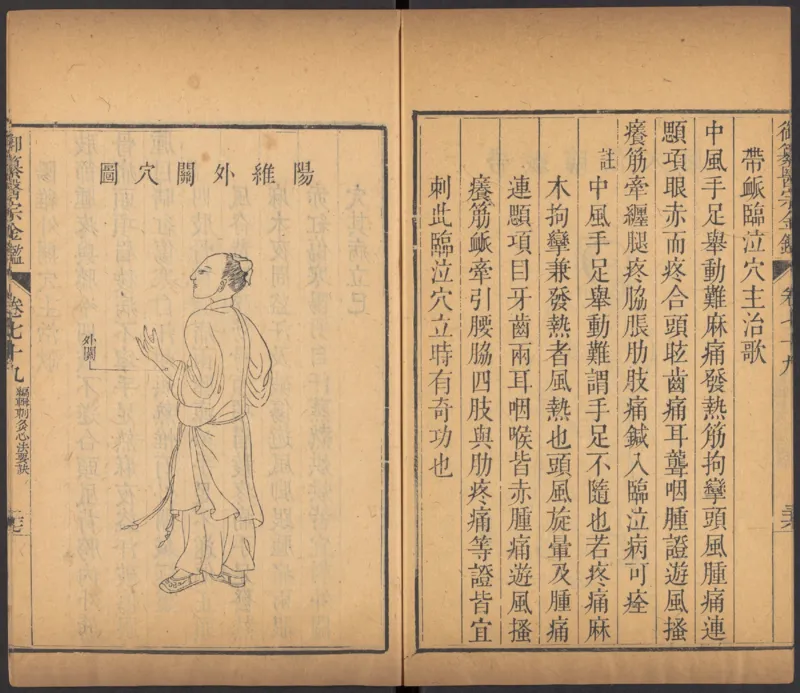 帶䘑臨泣穴主治歌
中風手足舉動難麻痛發熱筋拘攣頭風腫痛連
顋項眼赤而疼合頭眩齒痛耳聾咽腫證遊風搔
癢筋牽纏腿疼脇脹肋肢痛鍼入臨泣病可痊
註
中風手足舉動難謂手足不隨也若疼痛麻
木拘攣兼發熱者風熱也頭風旋暈及腫痛
連顋項目牙齒兩耳咽喉皆赤腫痛遊風搔
癢筋䘑牽引腰脇四肢與肋疼痛等證皆宜
刺此臨泣穴立時有奇功也
陽維外關穴圖
外關
御纂醫宗金鑑
卷七十九
編輯刺灸心法要訣